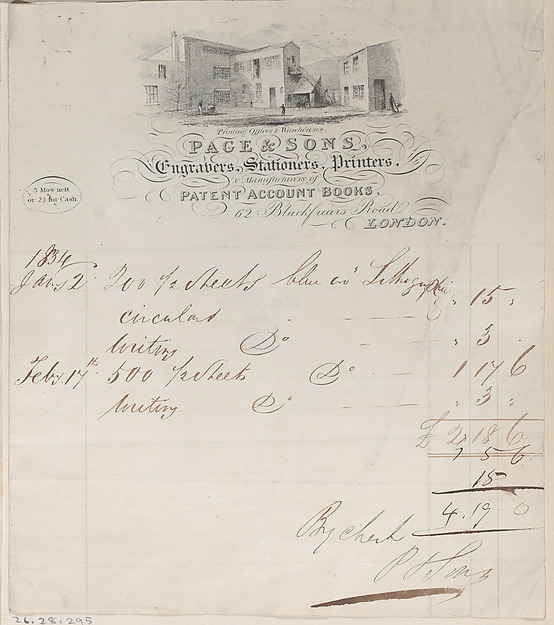 Printing Offices & Warehouses
PAGE & SONS,
Engravers, Stationers, Printers,
& Manufacturers of
PATENT ACCOUNT BOOKS,
62 Blackfriars Road
LONDON.
3 Mos. nett
or 2½ for Cash
1834
Jany 2 200 ½ sheets blue Lithographic " 15 "
circulars
Writing Do " 3 "
Feby 17th 500 ½ sheets Do 1 17 6
Writing Do " 3 "
£ 2 18 6
5 6
15
4 . 19 0
By check
P & Sons
26.28.295